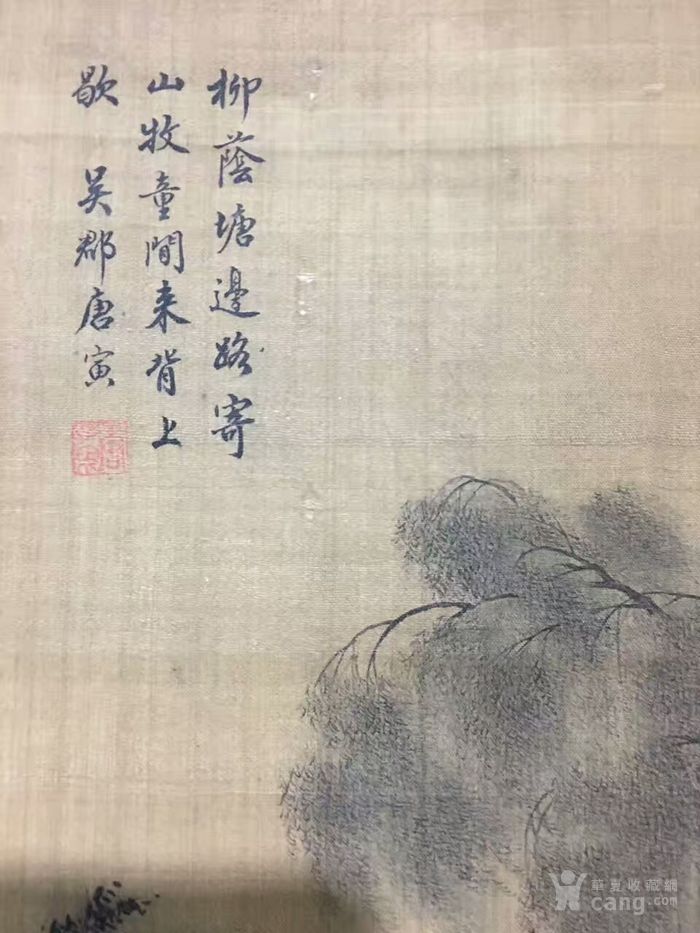 柳蔭塘邊路寄
山牧童間来背上
歇 吴郡唐寅
華夏收藏網
cang.com